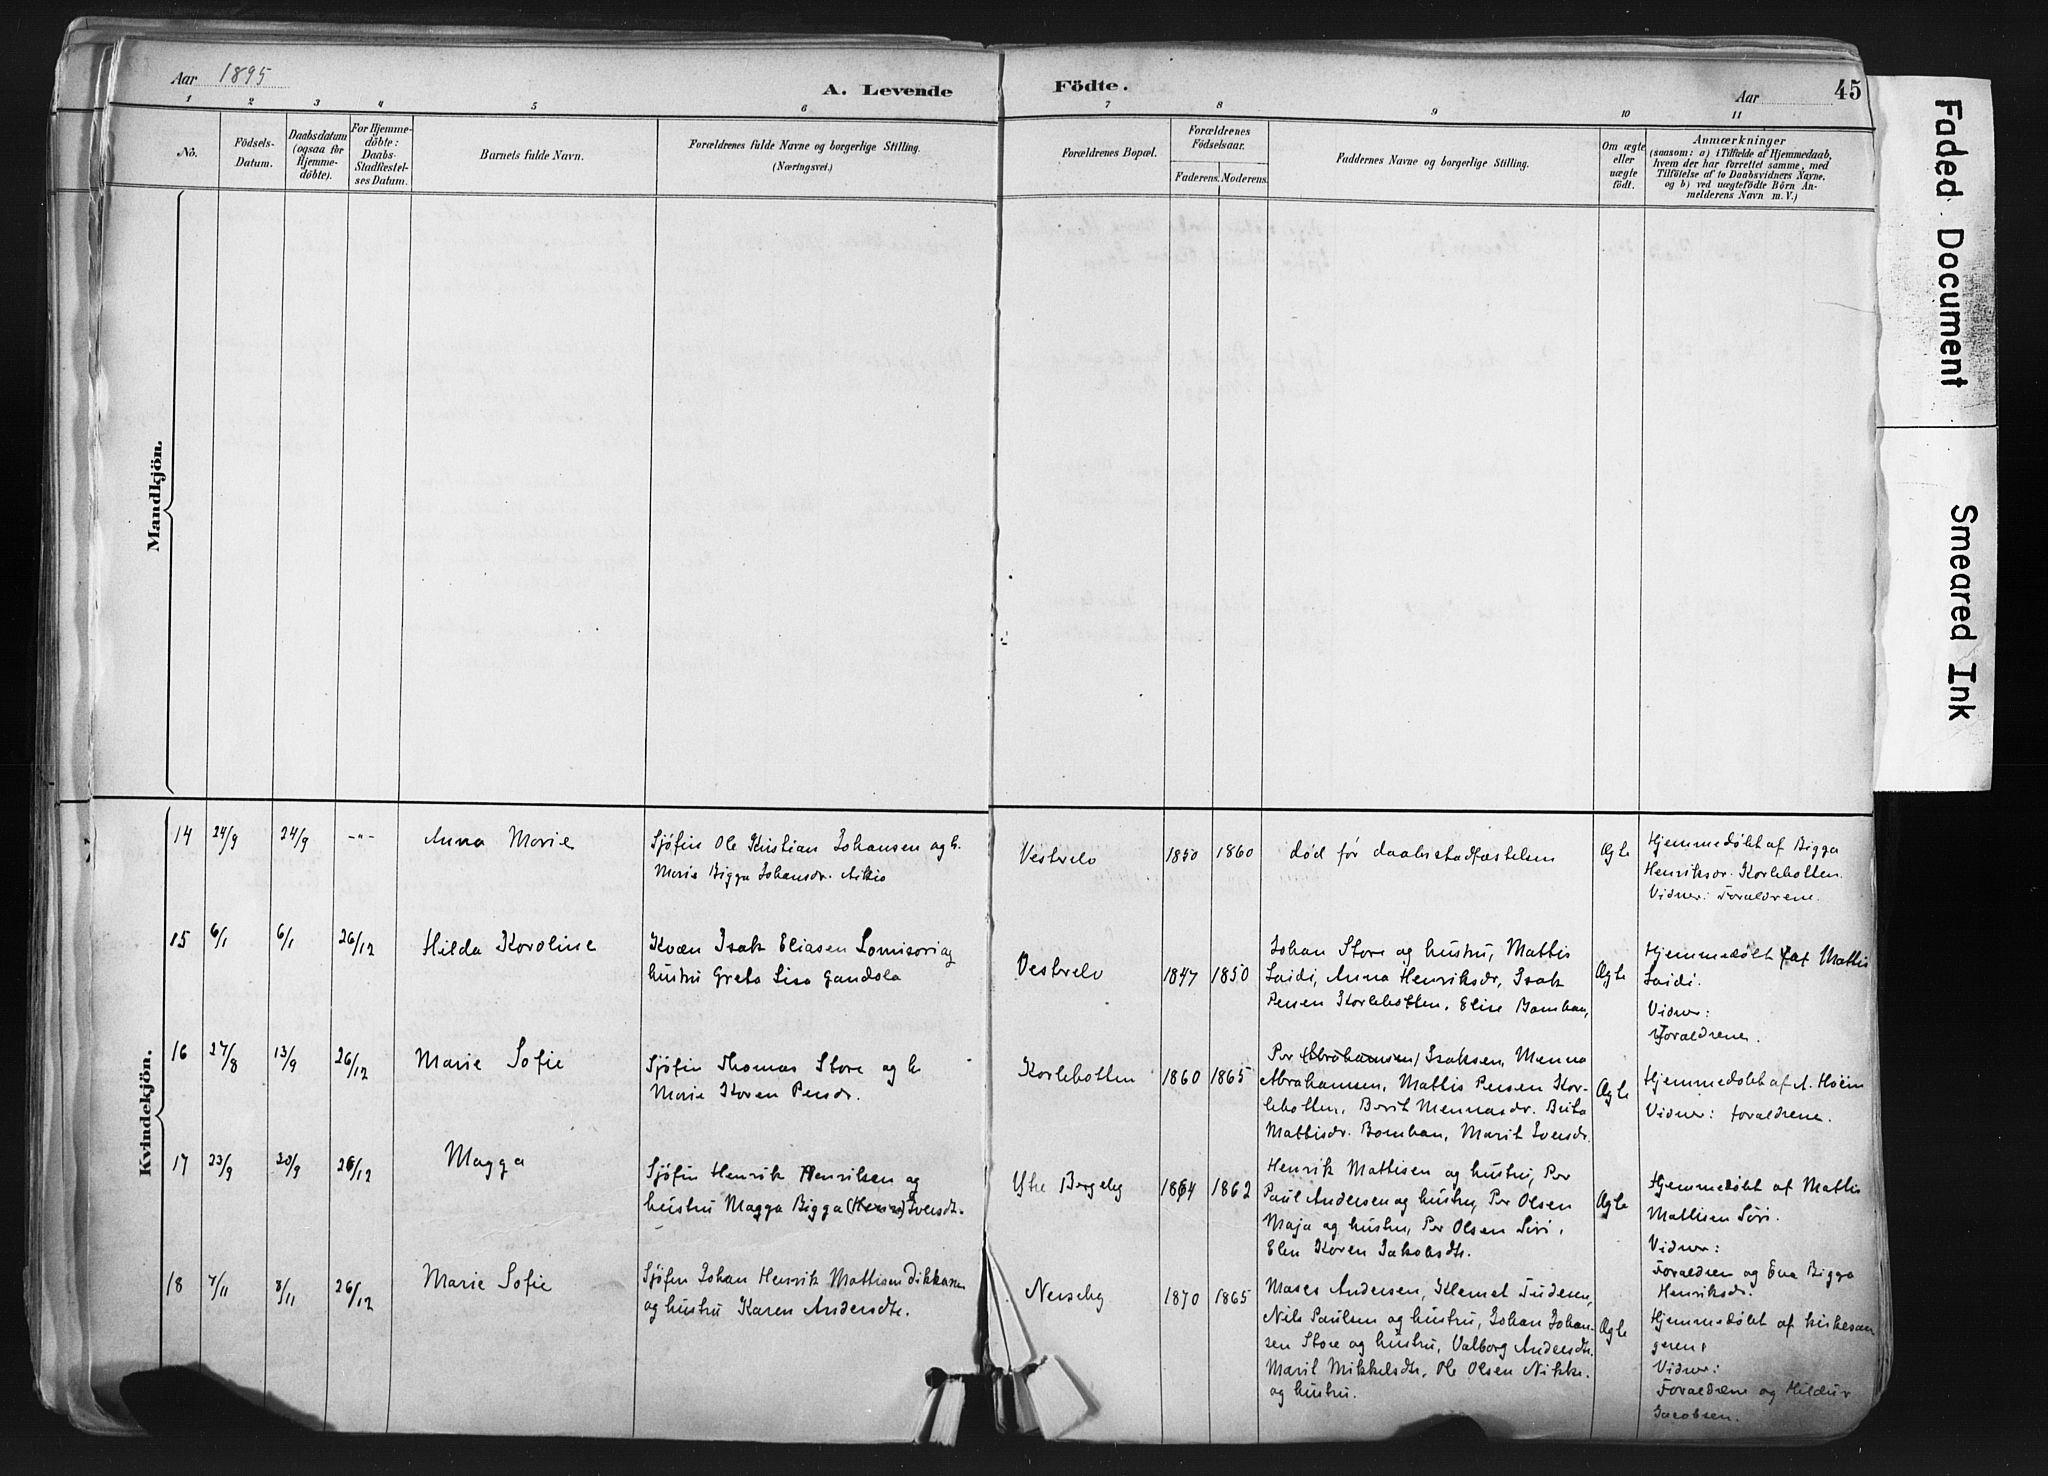 Aar 1895
A. Levende Födte.
Aar 45
1 2 3 4 5 6 7 8 9 10 11
No.
Födsels-
Datum.
Daabsdatum
(ogsaa for
Hjemme-
döbte).
For Hjemme-
döbte:
Daabs-
Stadfæstel-
ses Datum.
Barnets fulde Navn.
Forældrenes fulde Navne og borgerlige Stilling.
(Næringsvei.)
Forældrenes Bopæl.
Forældrenes
Födselsaar.
Faderens. Moderens.
Faddernes Navne og borgerlige Stilling.
Om ægte
eller
uægte
födt.
Anmærkninger
(saasom: a) i Tilfælde af Hjemmedaab,
hvem der har forrettet samme, med
Tilföielse af to Daabsvidners Navne,
og b) ved uægtefödte Börn An-
melderens Navn m. V.)
Mandkjön.
Kvindekjön.
14 24/9 24/9 -"- Anna Marie
Sjøfin Ole Kristian Johansen og h.
Marie Bigga Johansdr. Aikio
Vestrelv 1850 1860
død før daabsstadfæstelsen
Ægte
Hjemmedøbt af Bigga
Henriksdr. Karlebotten.
Vidner: Forældrene.
15 6/1 6/1 26/12 Hilda Karoline
Kvæn Isak Eliasen Lomisari og
hustru Greta Lisa
Vestrelv 1847 1850
Johan Store og hustru, Mattis
Saidi, Anna Henriksdr, Isak
Persen Karlebotten, Elise Bomban,
Ægte
Hjemmedøbt af Mattis
Saidi.
Vidner:
Forældrene.
16 27/8 13/9 26/12 Marie Sofie
Sjøfin Thomas Store og h.
Marie Karen Persdr.
Karlebotten 1860 1865
Per (Abrahamsen) Isaksen, Menna
Abrahamsen, Mattis Persen Kar-
lebotten, Berit Mennasdr. Brita
Mattisdr. Bomban, Marit Iversdr.
Ægte
Hjemmedøbt af A. Høiem
Vidner: forældrene.
17 23/9 30/9 26/12 Magga
Sjøfin Henrik Henriksen og
hustru Magga Bigga Iversdt.
Ytre Bergeby 1864 1862
Henrik Mattisen og hustru, Per
Paul Andersen og hustru, Per Olsen
Maja og hustru, Per Olsen Siri,
Elen Karen Jakobsdt.
Ægte
Hjemmedøbt af Mattis
Mattisen Siri.
Vidner:
Forældren og Eva Bigga
Henriksdr.
18 7/11 8/11 26/12 Marie Sofie
Sjøfin Johan Henrik Mattisen Dikkanen
og hustru Karen Andersdt.
Nesseby 1870 1865
Moses Andersen, Klemet Tudesen,
Nils Paulsen og hustru, Johan Johan-
sen Store og hustru, Valborg Andersdt.
Marit Mikkelsdt, Ole Olsen Nikke
og hustru.
Ægte
Hjemmedøbt af kirkesan
geren.
Vidner:
Forældrene og Hildur
Jacobsen.
Faded Document
Smeared Ink